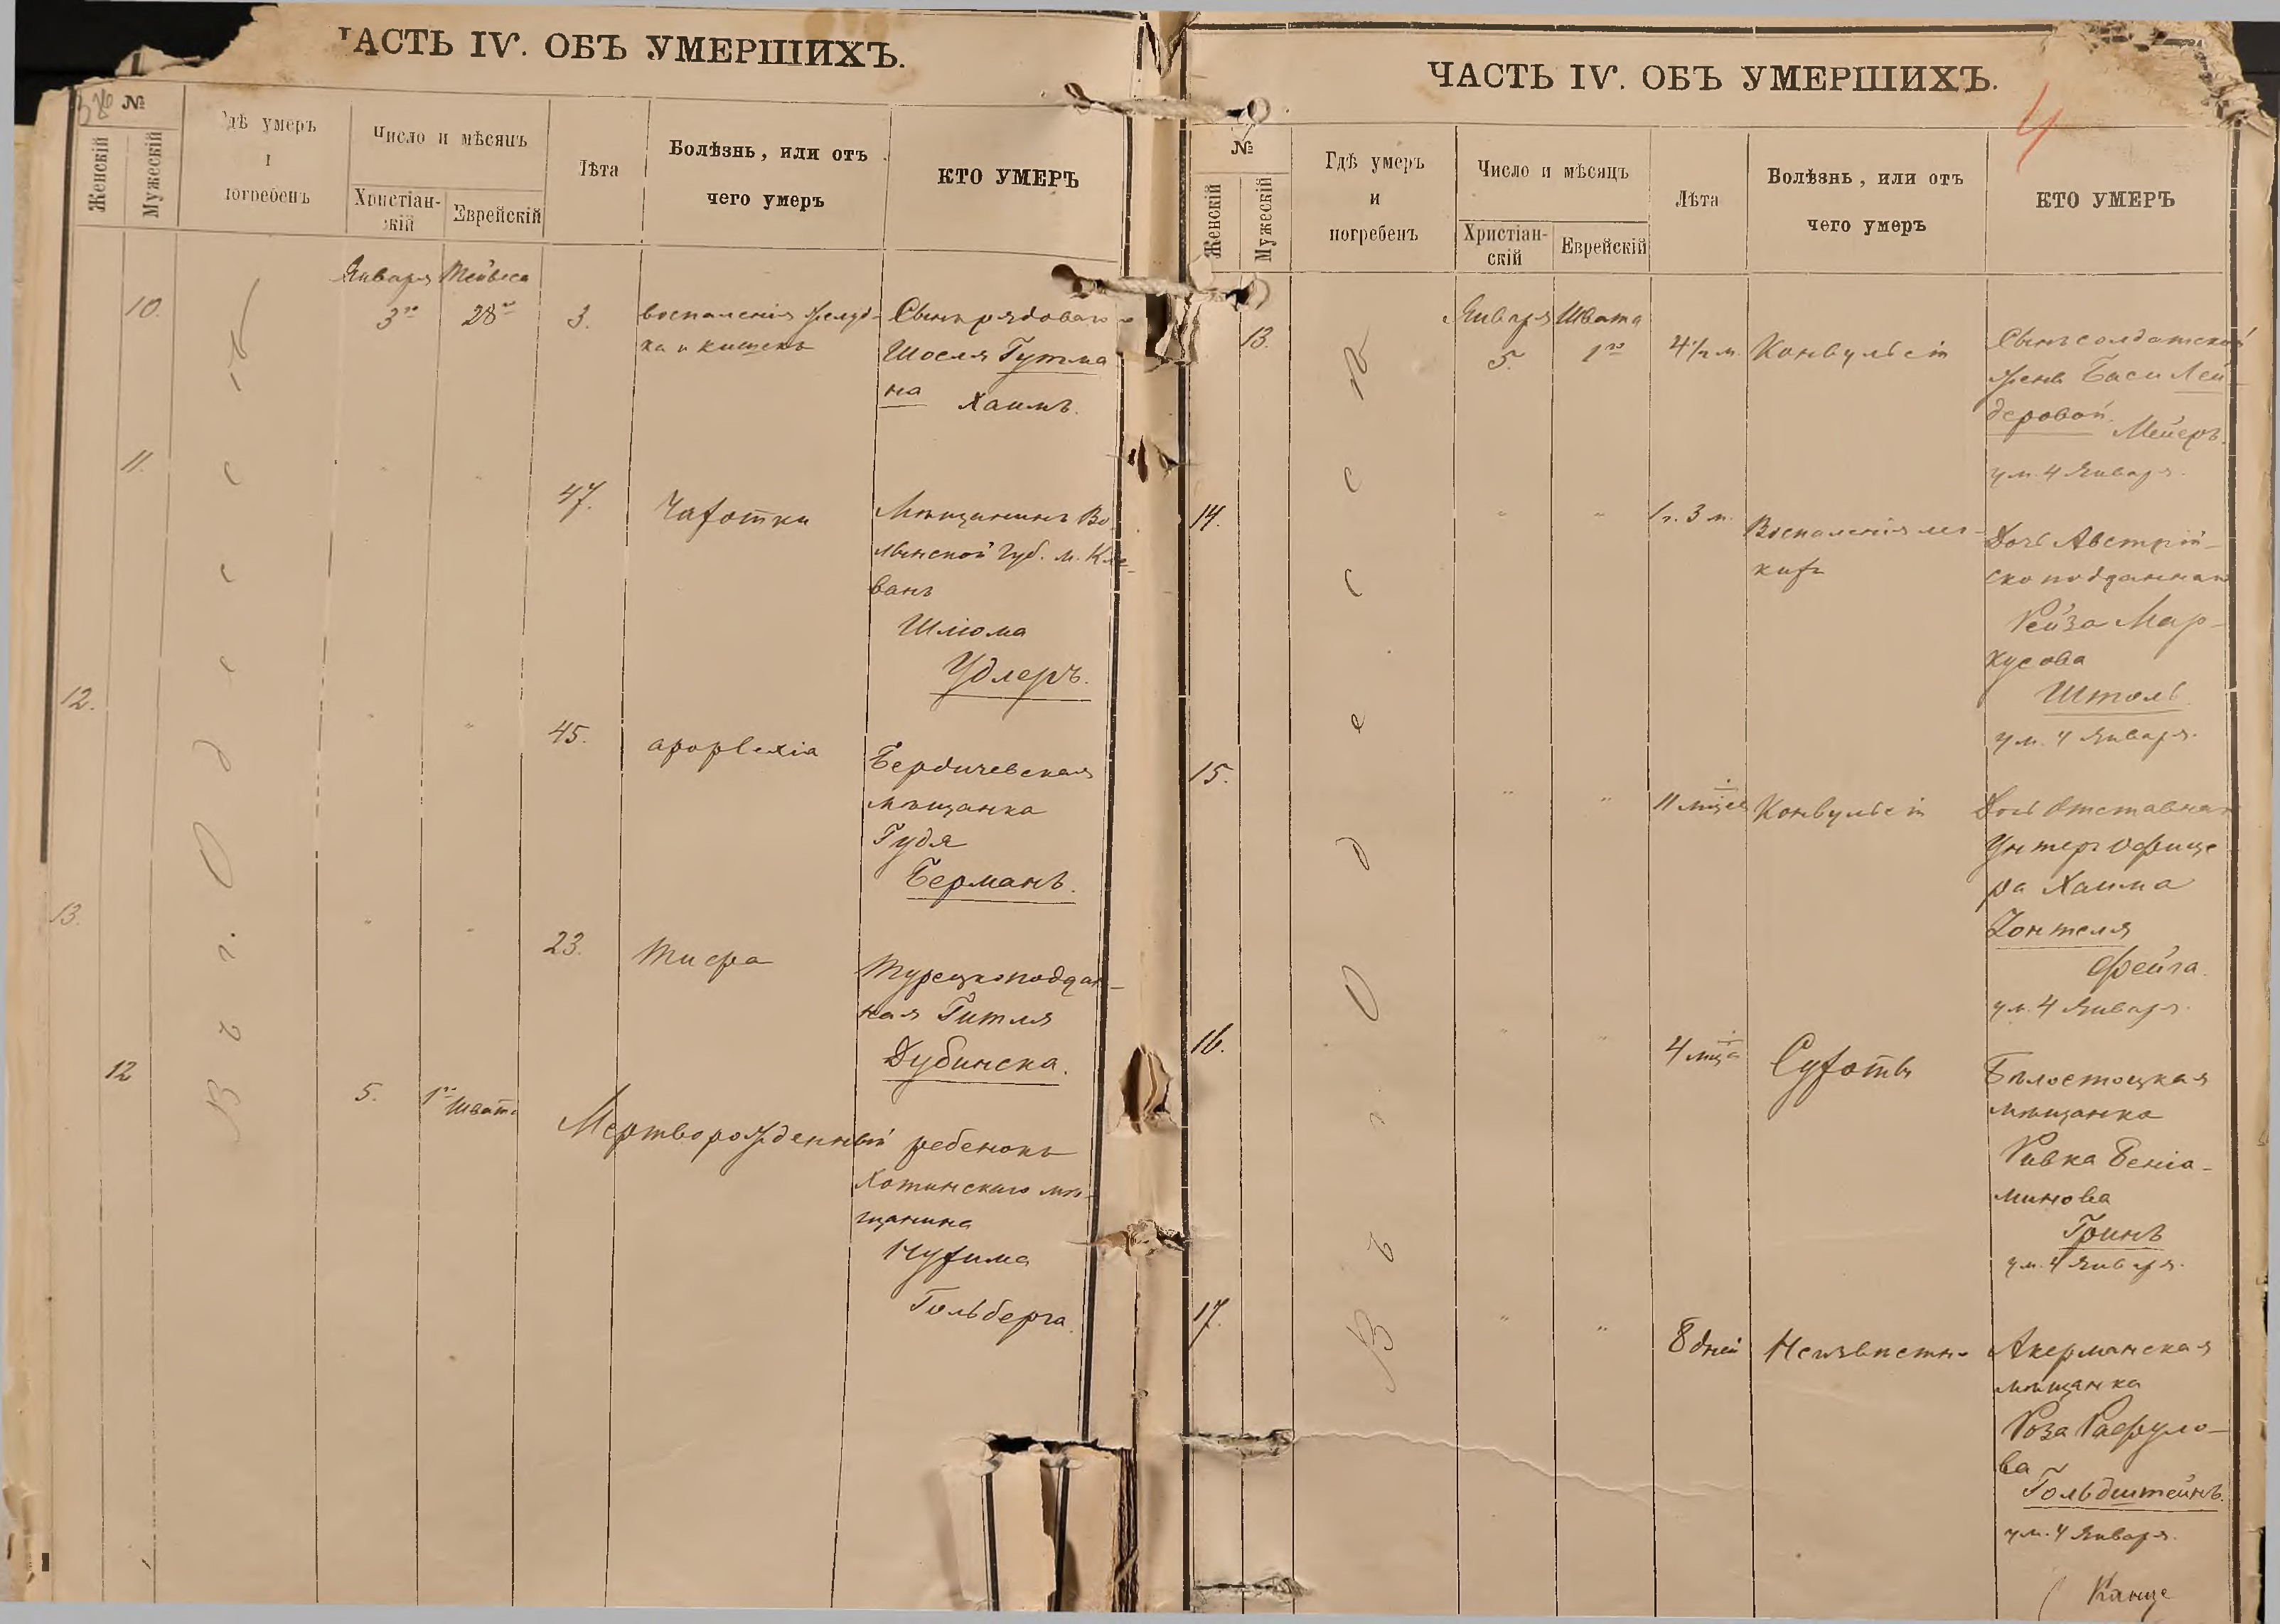 ЧАСТЬ IV. ОБЪ УМЕРШИХЪ.
№
Женскій
Мужескій
Гдѣ умеръ
и
погребенъ
Число и мѣсяцъ
Христіан-
скій
Еврейскій
Лѣта
Болѣзнь, или отъ
чего умеръ
КТО УМЕРЪ
Января Тейвеса
10. 3го 28го 3. воспаленія желуд- Сынъ рядоваго
ка и кишекъ
Шоеля Гутма
на Хаимъ.
11. " " 47. Чахотки Мѣщанинъ Во
лынской губ. м. Кле-
вань
Шлюма
Удлеръ.
12. " " 45. apoplexia Бердичевская
мѣщанка
Гудя
Берманъ.
13. " " 23. Тифа Турецкоподдан-
ная Гитля
Дубинска.
12 5. 1го Швата Мертворожденный ребенокъ
Хотинскаго мѣ-
щанина
Нухима
Гольберга.
Въ г. Одессѣ
ЧАСТЬ IV. ОБЪ УМЕРШИХЪ.
4
№
Женскій
Мужескій
Гдѣ умеръ
и
погребенъ
Число и мѣсяцъ
Христіан-
скій
Еврейскій
Лѣта
Болѣзнь, или отъ
чего умеръ
КТО УМЕРЪ
Января Швата
13. 5. 1го 4½ м. Конвульсіи Сынъ солдатской
жены Баси Лей-
деровой Мейеръ.
ум. 4 Января.
14. " " 1 г. 3 м. Воспаленія лег-
кихъ
Дочь Австрій-
ско подданнаго
Рейза Мар-
кусова
Штоль
ум. 4 Января.
15. " " 11 мцев Конвульсіи Дочь Отставнаго
Унтеръ Офице
ра Хаима
Зонтеля
Фейга.
ум. 4 Января.
16. " " 4 мца Сухоты Бѣлостоцкая
мѣщанка
Ривка Беніа-
минова
Гринъ
ум. 4 Января.
17. " " 8 дней Неизвѣстн- Акерманская
мѣщанка
Роза Рафуло-
ва
Гольдштейнъ.
ум. 4 Января.
Въ г. Одессѣ